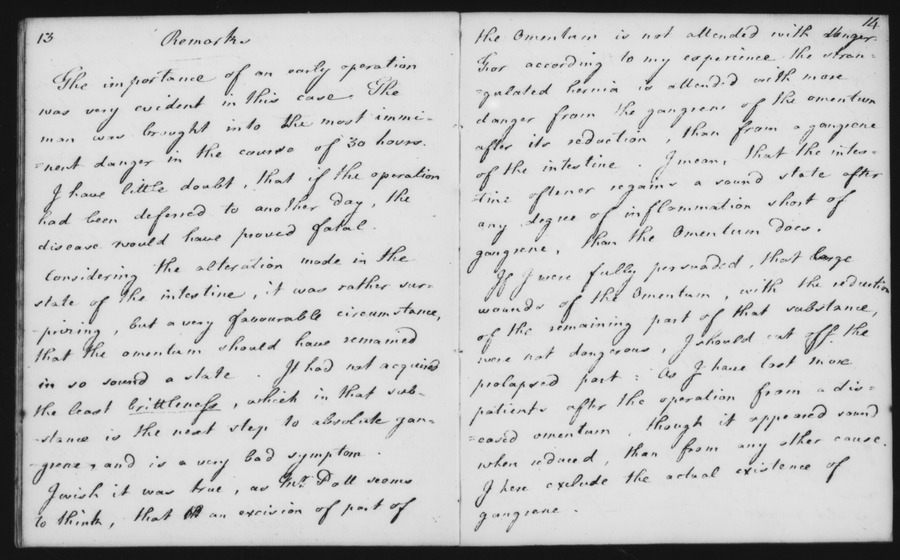 13
Remarks
The importance of an early operation
was very evident in this case. The
man was brought into the most immi-
-nent danger in the course of 30 hours.
I have little doubt, that if the operation
had been deferred to another day, the
disease would have proved fatal.
Considering the alteration made in the
state of the intestine, it was rather sur-
-prising, but a very favourable circumstance,
that the omentum should have remained
in so sound a state. It had not acquired
the least brittleness, which in that sub-
-stance is the next step to absolute gan-
-grene, and is a very bad symptom.
I wish it was true, as Mr. Pott seems
to think, that an excision of part of
14
the Omentum is not attended with danger.
For according to my experience the stran-
-gulated hernia is attended with more
danger from the gangrene of the omentum
after its reduction, than from a gangrene
of the intestine. I mean, that the intes-
-tine oftener regains a sound state after
any degree of inflammation short of
gangrene, than the Omentum does.
If I were fully persuaded, that large
wounds of the Omentum, with the reduction
of the remaining part of that substance,
were not dangerous, I should cut off the
prolapsed part: As I have lost more
patients after the operation from a dis-
-eased omentum, though it appeared sound
when reduced, than from any other cause.
I here exclude the actual existence of
gangrene.